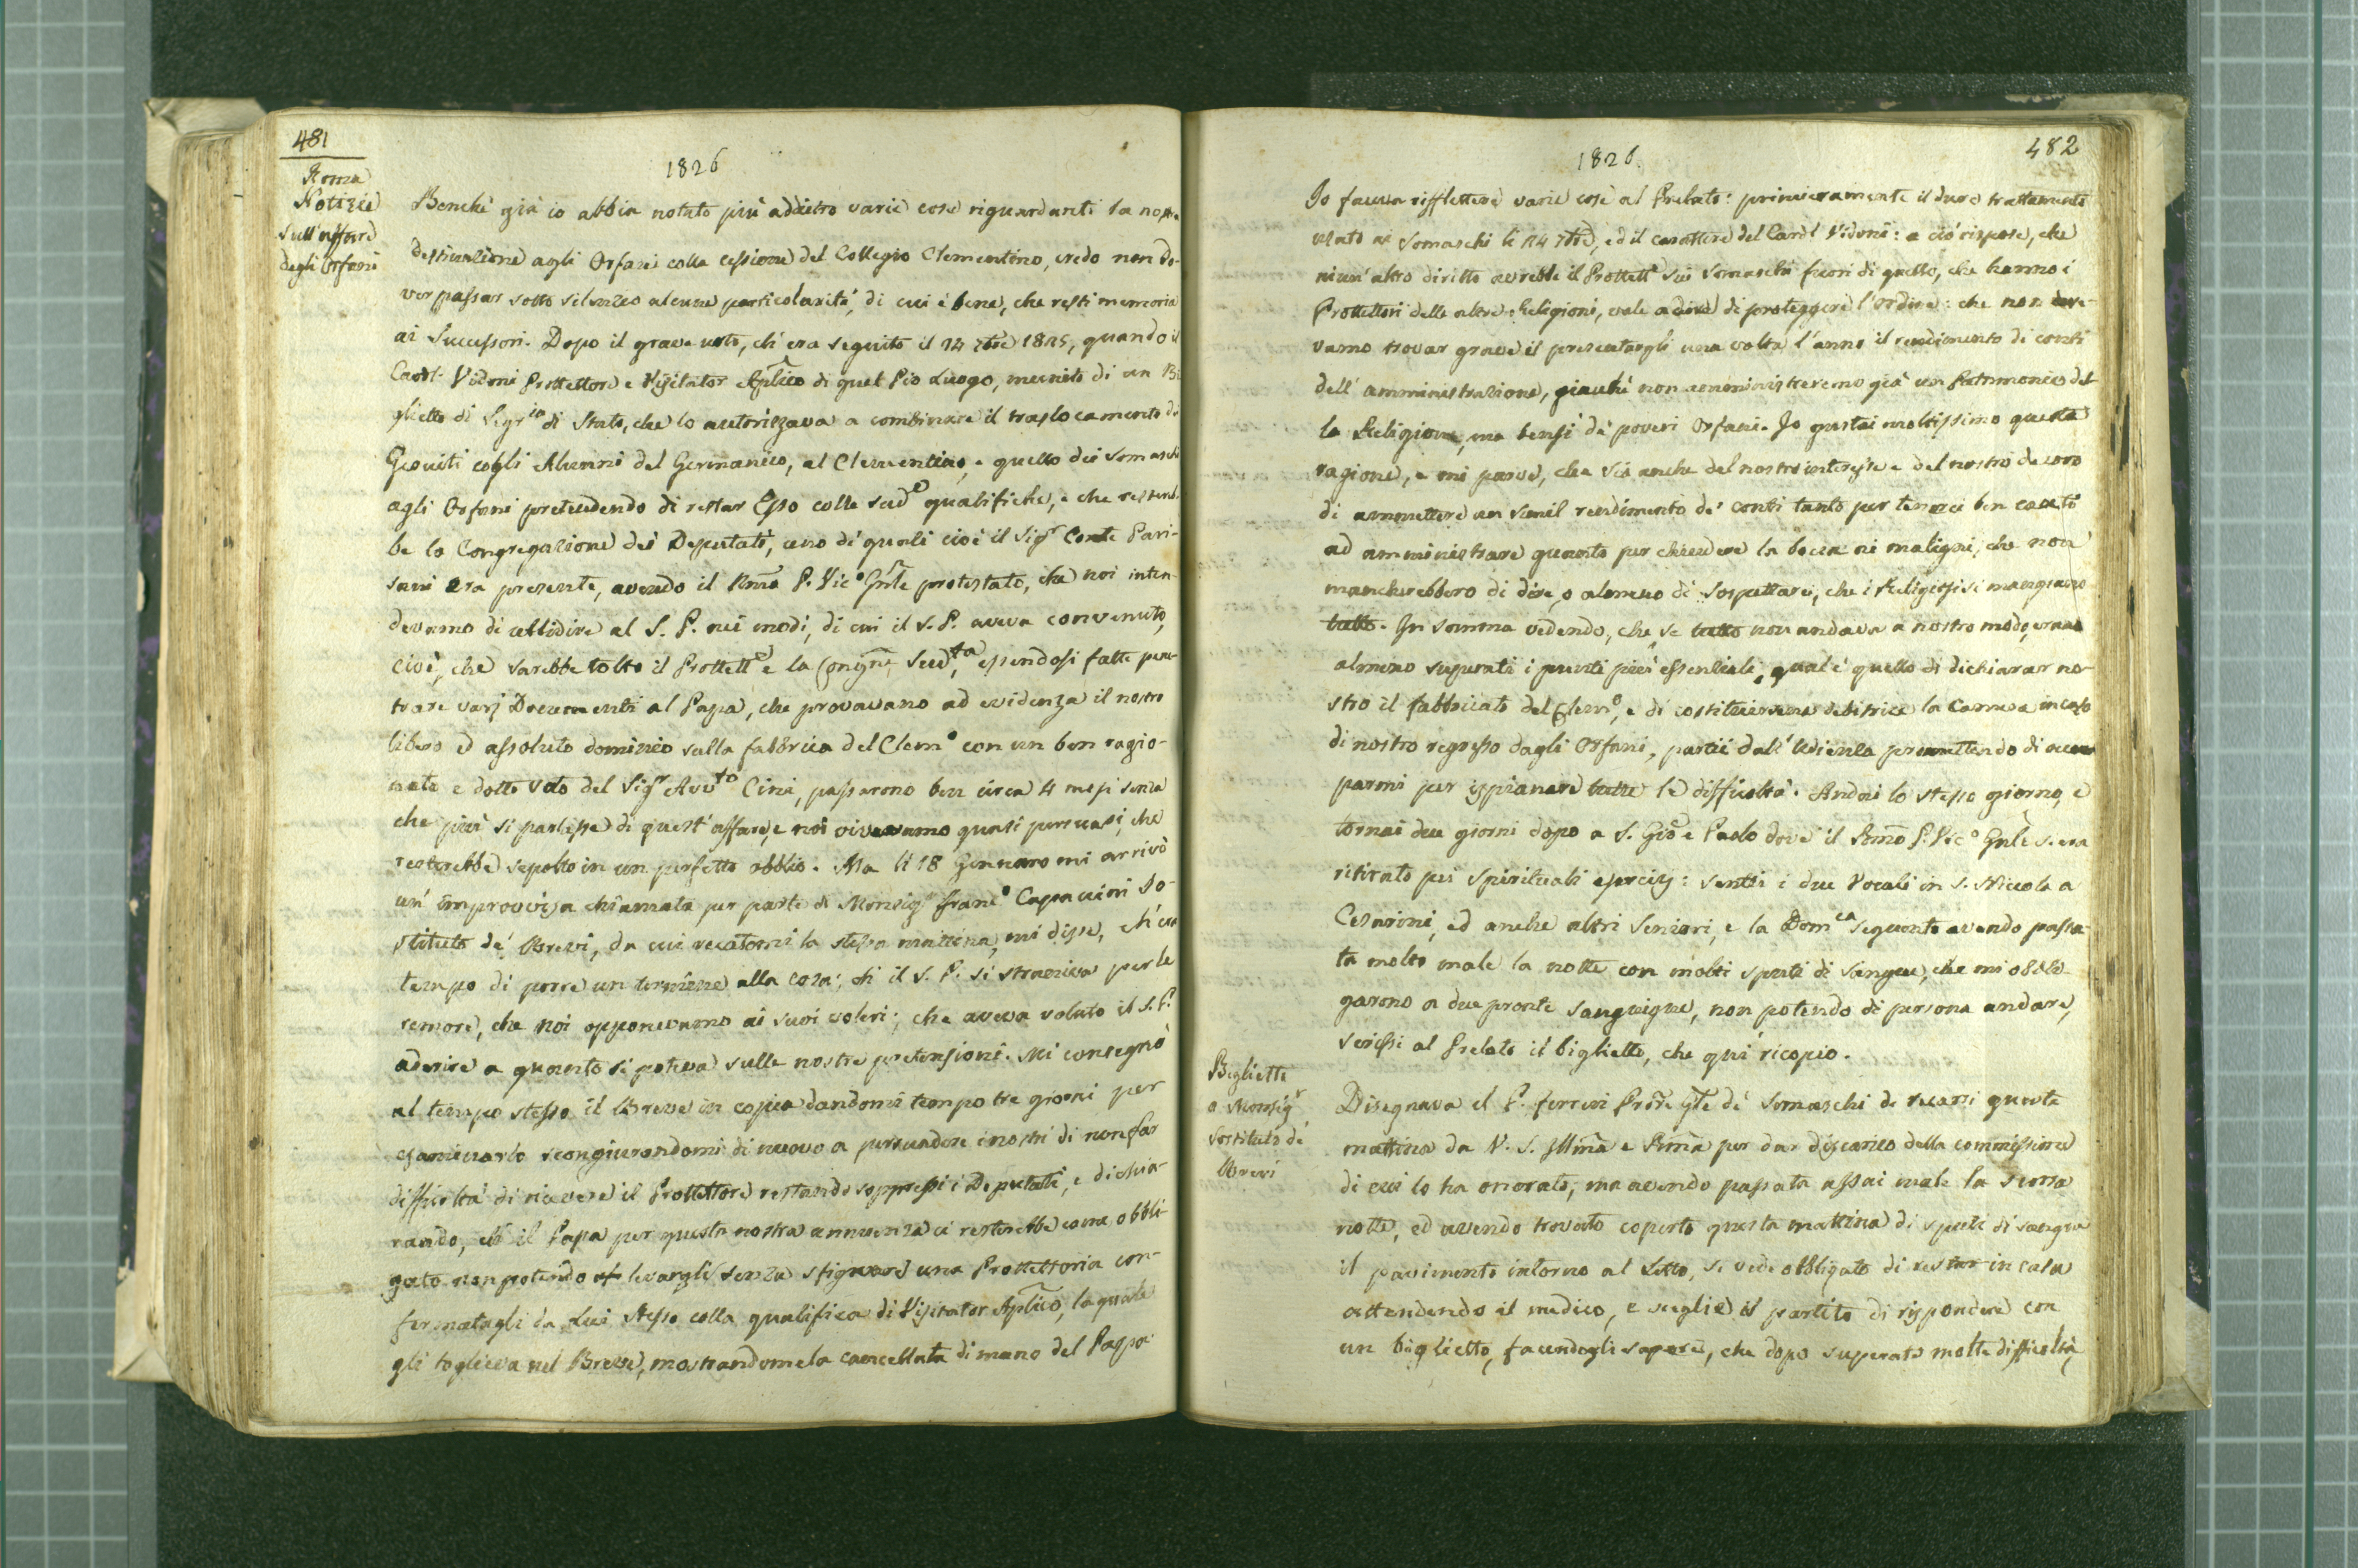 481
Roma
Notizie
sull'affare
degli Orfani
1826
Benchè già io abbia notato più addietro varie cose riguardanti la nostra
destinazione agli Orfani colla cessione del Collegio Clementino, credo non do-
ver passar sotto silenzio alcune particolarità, di cui è bene, che resti memoria
ai Successori. Dopo il grave urto, ch'era seguito il 24 7bre 1825, quando il
Card. Vidoni Protettore e Visitator Aplico di quel Pio Luogo, munito di un Bi
glietto di Segria di Stato, che lo autorizzava a combinare il traslocamento de
Gesuiti cogli Alunni del Germanico, al Clementino, e quello dei Somaschi
agli Orfani pretendendo di restar Esso colle sude qualifiche, e che resterebb
be la Congregazione dei Deputati, uno de' quali cioè il Sigr Conte Pari-
sani era presente, avendo il Rmo P. Vico Gnle protestato, che noi inten-
devamo di ubbidire al S. P. nei modi, di cui il S. P. aveva convenuto,
cioè, che sarebbe tolto il Protette e la Congne sudta, essendosi fatte pene-
trare varj Documenti al Papa, che provavano ad evidenza il nostro
libero ed assoluto dominio sulla fabbrica del Clemo con un ben ragio-
nato e dotto voto del Sigr Avvto Cini, passarono ben circa 4 mesi senza
che più si parlasse di quest'affare, e noi vivevamo quasi persuasi, che
resterebbe sepolto in un perfetto obblio. Ma li 18 Gennaro mi arrivò
un' improvvisa chiamata per parte di Monsigr Franco Capaccini So-
stituto de' Brevi, da cui recatomi la stessa mattina, mi disse, ch'era
tempo di porre un termine alla cosa; ch il S. P. si straniva per le
remore, che noi opponevamo ai suoi voleri; che aveva voluto il S. P.
aderire a quanto si poteva sulle nostre pretensioni. Mi consegnò
al tempo stesso il Breve in copia dandomi tempo tre giorni per
esaminarlo scongiurandomi di nuovo a persuadere i nostri di non far
difficoltà di ricevere il Protettore restando soppressi i Deputati, e dichia-
rando, ch il Papa per questa nostra annuenza ci resterebbe come obbli-
gato non potendo levargli senza sfigurare una Protettoria con-
fermatagli da Lui stesso colla qualifica di Visitator Aplico, la quale
gli toglieva nel Breve, mostrandomela cancellata di mano del Papa.
482
1826.
Io faceva rifflettere varie cose al Prelato: primieramente il duro trattamento
usato ai Somaschi li 24 7bre, ed il carattere del Cardl Vidoni: a ciò rispose, che
niun' altro diritto avrebbe il Protette sui Somaschi fuori di quello, che hanno i
Protettori delle altre Religioni, vale a dire di proteggere l'ordine: che non dove-
vamo trovar grave il presentargli una volta l'anno il rendimento di conti
dell' amministrazione, giacchè non amministreremo già un Patrimonio del-
la Religione, ma bensì de' poveri Orfani. Io gustai moltissimo questa
ragione, e mi parve, che sia anche del nostro interesse e del nostro decoro
di ammettere un simil rendimento de' conti tanto per tenerci ben cauti
ad amministrare quanto per chiudere la bocca ai maligni, che non
mancherebbero di dire, o almeno di sospettare, che i Religiosi si mangiano
tutto. In somma vedendo, che se tutto non andava a nostro modo, erano
almeno superati i punti più essenziali, qual'è quello di dichiarar no-
stro il fabbricato del Clemo, e di costituirsene debitrice la Camera in caso
di nostro regresso dagli Orfani, partii dall' Udienza promettendo di occu
parmi per ispianare tutte le difficoltà. Andai lo stesso giorno, e
tornai due giorni dopo a S. Gioe Paolo dove il Rmo P. Vico Gnle s'era
ritirato pei spirituali esercizj: sentii i due Vocali in S. Niccola a
Cesarini, ed anche altri Seniori, e la Domca seguente avendo passa-
ta molto male la notte con molti sputi di sangue, che mi obbli-
garono a due pronte sanguigne, non potendo di persona andare,
scrissi al Prelato il biglietto, che qui ricopio.
Biglietto
a Monsigr
Sostituto de'
Brevi
Disegnava il P. Ferreri Prore Gle de' Somaschi di recarsi questa
mattina da V. S. Illma e Rma per dar discarico della commissione
di cui lo ha onorato; ma avendo passata assai male la scorsa
notte, ed avendo trovato coperto questa mattina di sputi di sangue
il pavimento intorno al Letto, si vede obbligato di restar in casa
attendendo il medico, e sceglie il partito di rispondere con
un biglietto, facendogli sapere, che dopo superate molte difficoltà,